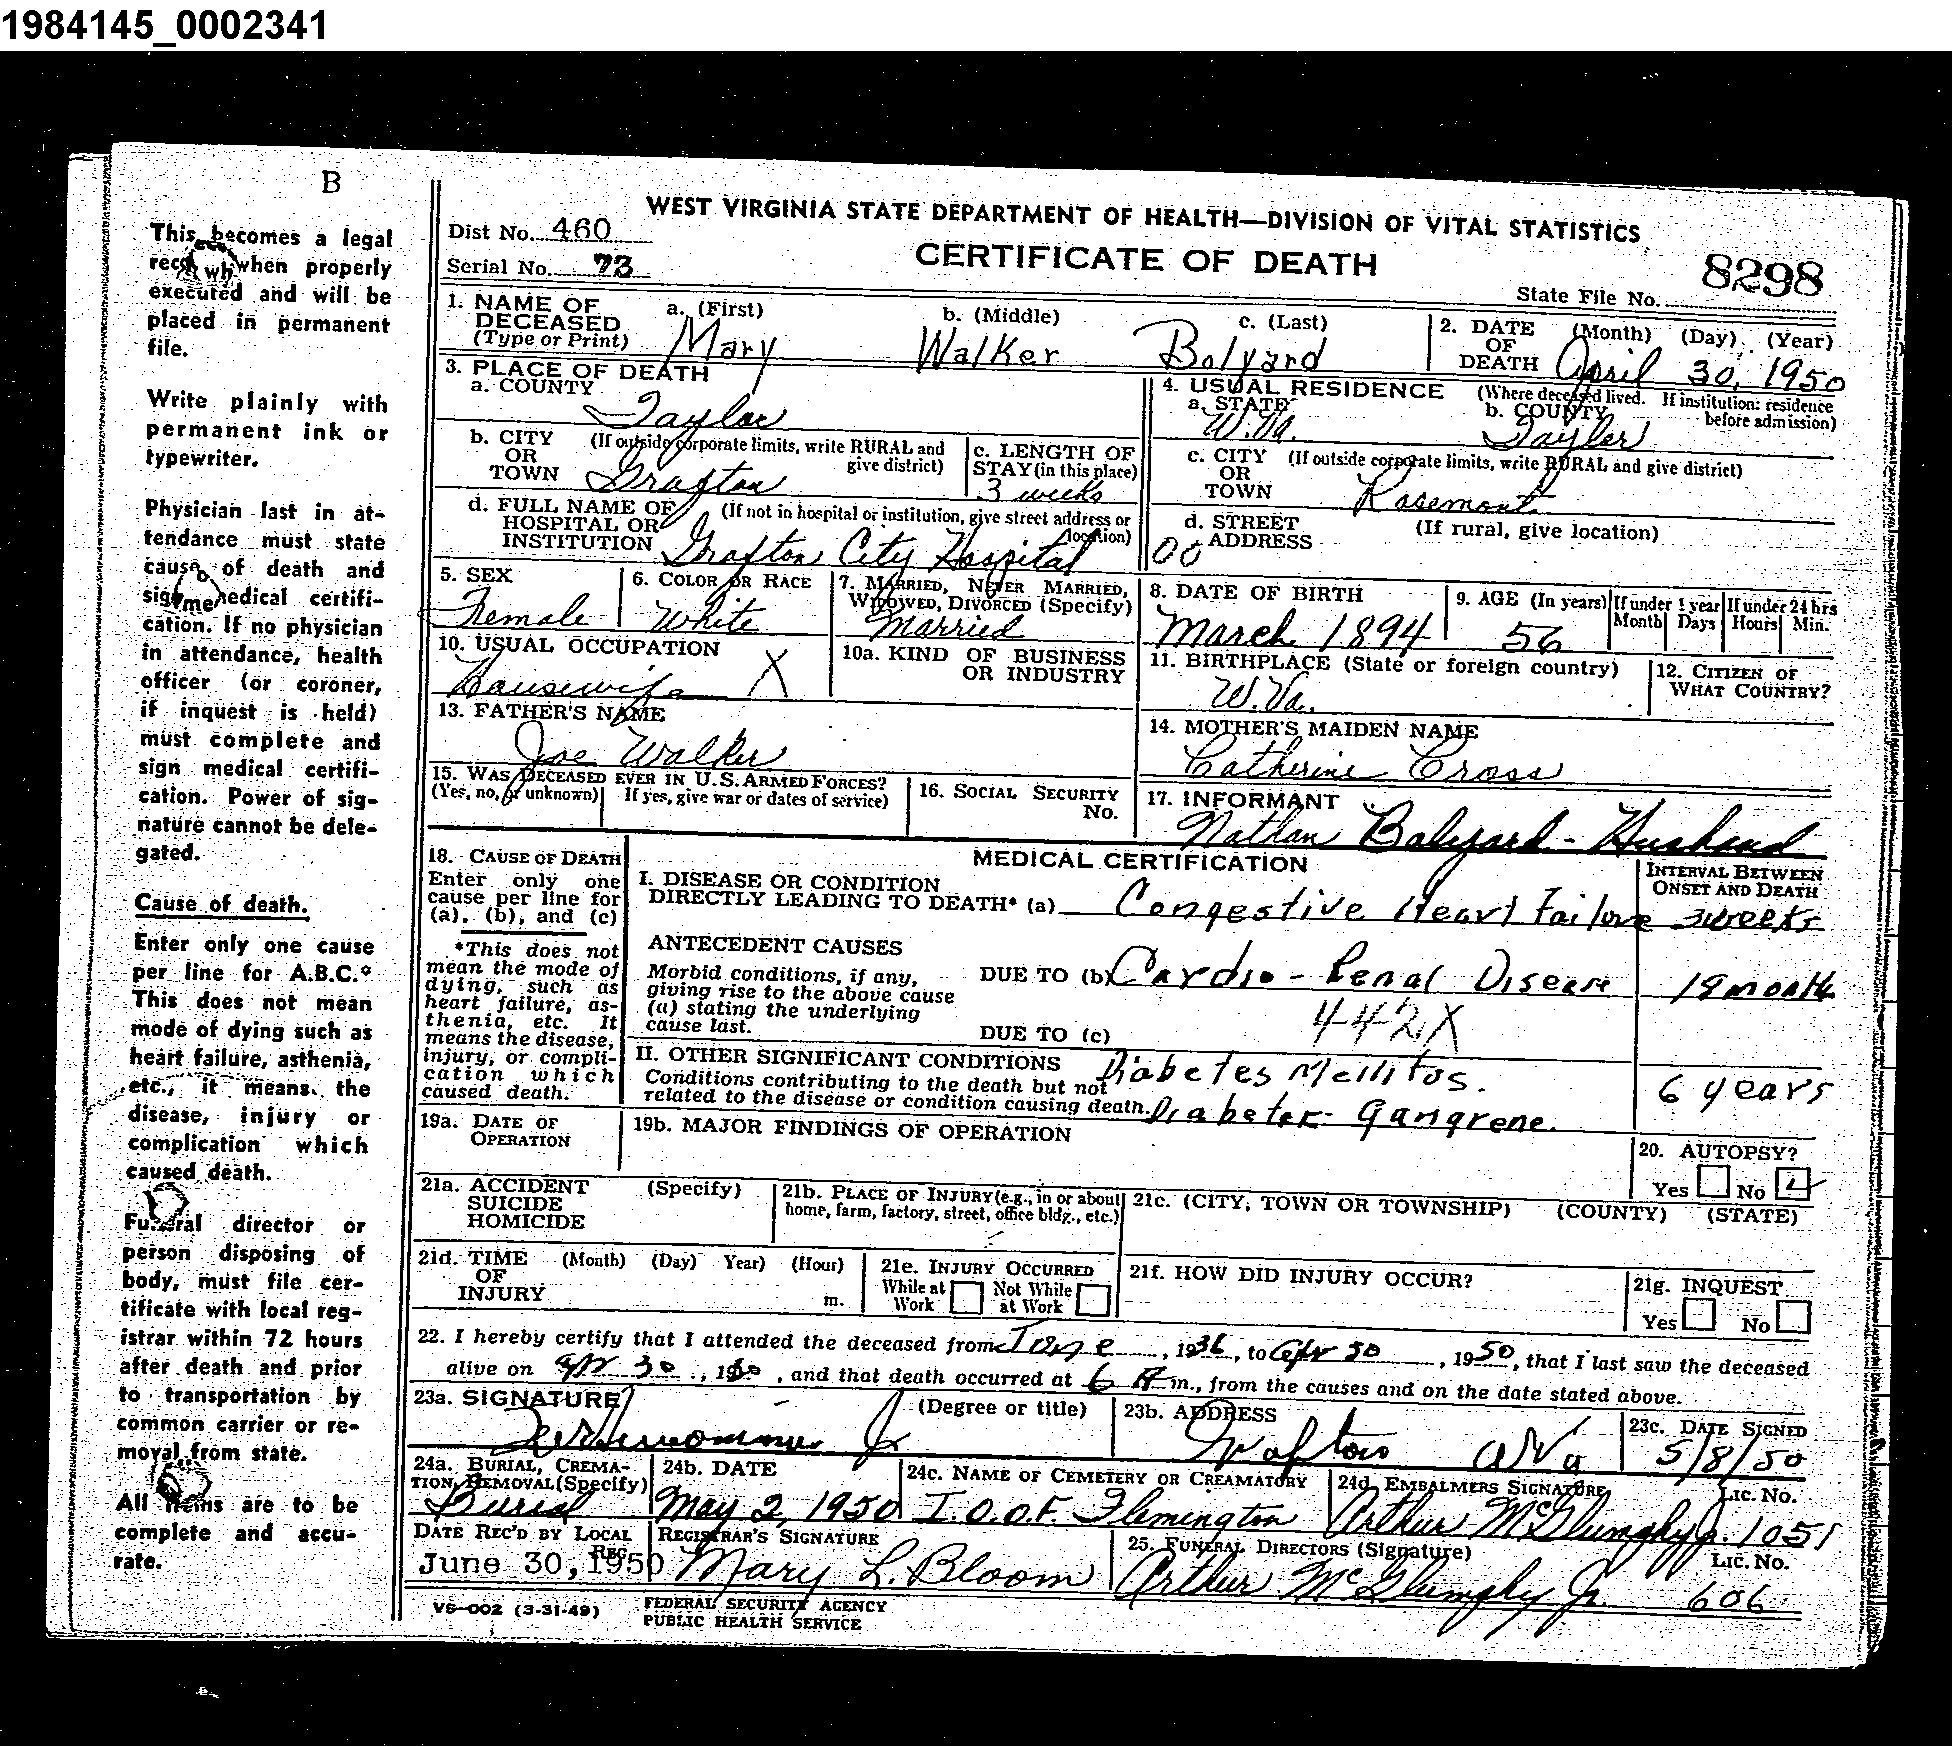 1984145_0002341
B
This becomes a legal
record when properly
executed and will be
placed in permanent
file.
Write plainly with
permanent ink or
typewriter.
Physician last in at-
tendance must state
cause of death and
sign medical certifi-
cation. If no physician
in attendance, health
officer (or coroner,
if inquest is held)
must complete and
sign medical certifi-
cation. Power of sig-
nature cannot be dele-
gated.
Cause of death.
Enter only one cause
per line for A.B.C.*
This does not mean
mode of dying such as
heart failure, asthenia,
etc., it means the
disease, injury or
complication which
caused death.
Funeral director or
person disposing of
body, must file cer-
tificate with local reg-
istrar within 72 hours
after death and prior
to transportation by
common carrier or re-
moval from state.
All items are to be
complete and accu-
rate.
WEST VIRGINIA STATE DEPARTMENT OF HEALTH—DIVISION OF VITAL STATISTICS
Dist No. 460
CERTIFICATE OF DEATH
Serial No. 73
State File No. 8298
1. NAME OF DECEASED (Type or Print) a. (First) Mary b. (Middle) Walker c. (Last) Bolyard
2. DATE OF DEATH (Month) (Day) (Year) April 30, 1950
3. PLACE OF DEATH
a. COUNTY Taylor
b. CITY OR TOWN (If outside corporate limits, write RURAL and give district) Grafton
c. LENGTH OF STAY (in this place) 3 weeks
d. FULL NAME OF HOSPITAL OR INSTITUTION (If not in hospital or institution, give street address or location) Grafton City Hospital
4. USUAL RESIDENCE (Where deceased lived. If institution: residence before admission)
a. STATE W.Va. b. COUNTY Taylor
c. CITY OR TOWN (If outside corporate limits, write RURAL and give district) Rosemont
d. STREET ADDRESS (If rural, give location) 00
5. SEX Female
6. COLOR OR RACE White
7. MARRIED, NEVER MARRIED, WIDOWED, DIVORCED (Specify) Married
8. DATE OF BIRTH March 1894
9. AGE (In years) 56 If under 1 year Month Days If under 24 hrs Hours Min.
10. USUAL OCCUPATION Housewife X
10a. KIND OF BUSINESS OR INDUSTRY
11. BIRTHPLACE (State or foreign country) W.Va.
12. CITIZEN OF WHAT COUNTRY?
13. FATHER'S NAME Joe Walker
14. MOTHER'S MAIDEN NAME Catherine Cross
15. WAS DECEASED EVER IN U.S. ARMED FORCES? (Yes, no, or unknown) If yes, give war or dates of service)
16. SOCIAL SECURITY No.
17. INFORMANT Nathan Bolyard - Husband
18. CAUSE OF DEATH
Enter only one
cause per line for
(a), (b), and (c)
*This does not
mean the mode of
dying, such as
heart failure, as-
thenia, etc. It
means the disease,
injury, or compli-
cation which
caused death.
MEDICAL CERTIFICATION
INTERVAL BETWEEN ONSET AND DEATH
I. DISEASE OR CONDITION
DIRECTLY LEADING TO DEATH* (a) Congestive Heart Failure 3 weeks
ANTECEDENT CAUSES
Morbid conditions, if any,
giving rise to the above cause
(a) stating the underlying
cause last.
DUE TO (b) Cardio - Renal Disease 18 month
442X
DUE TO (c)
II. OTHER SIGNIFICANT CONDITIONS Diabetes Mellitus. 6 years
Conditions contributing to the death but not
related to the disease or condition causing death. Diabetic Gangrene.
19a. DATE OF OPERATION
19b. MAJOR FINDINGS OF OPERATION
20. AUTOPSY? Yes No
21a. ACCIDENT SUICIDE HOMICIDE (Specify)
21b. PLACE OF INJURY (e.g., in or about home, farm, factory, street, office bldg., etc.)
21c. (CITY, TOWN OR TOWNSHIP) (COUNTY) (STATE)
21d. TIME OF INJURY (Month) (Day) Year) (Hour) m.
21e. INJURY OCCURRED While at Work Not While at Work
21f. HOW DID INJURY OCCUR?
21g. INQUEST Yes No
22. I hereby certify that I attended the deceased from June, 1936, to Apr 30, 1950, that I last saw the deceased
alive on Apr 30, 1950, and that death occurred at 6 A m., from the causes and on the date stated above.
23a. SIGNATURE (Degree or title)
23b. ADDRESS Grafton W Va
23c. DATE SIGNED 5/8/50
24a. BURIAL, CREMATION, REMOVAL (Specify) Burial
24b. DATE May 2, 1950
24c. NAME OF CEMETERY OR CREAMATORY I.O.O.F. Flemington
24d. EMBALMERS SIGNATURE Arthur McGlumphy Jr. Lic. No. 1051
DATE REC'D BY LOCAL REG. June 30, 1950
REGISTRAR'S SIGNATURE Mary L. Bloom
25. FUNERAL DIRECTORS (Signature) Arthur McGlumphy Jr. Lic. No. 606
VS-002 (3-31-49)
FEDERAL SECURITY AGENCY
PUBLIC HEALTH SERVICE